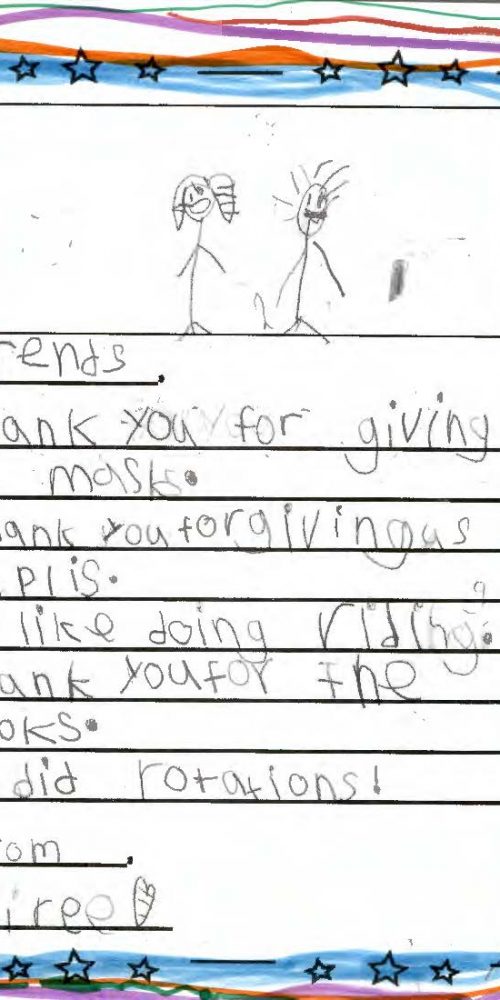 rends.
ank you for giving
mask.
ank you for giving us
plis.
like doing riding.
ank you for the
oks.
did rotations!
om.
iree